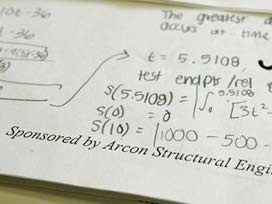 10t - 36
The greatest
occurs at time
t - 36
t = 5.5108,
test endpts/rel
S(5.5108) = |∫₀^5.5108 [3t²-
S(0) = 0
S(10) = |1000 - 500 -
Sponsored by Arcon Structural Engi